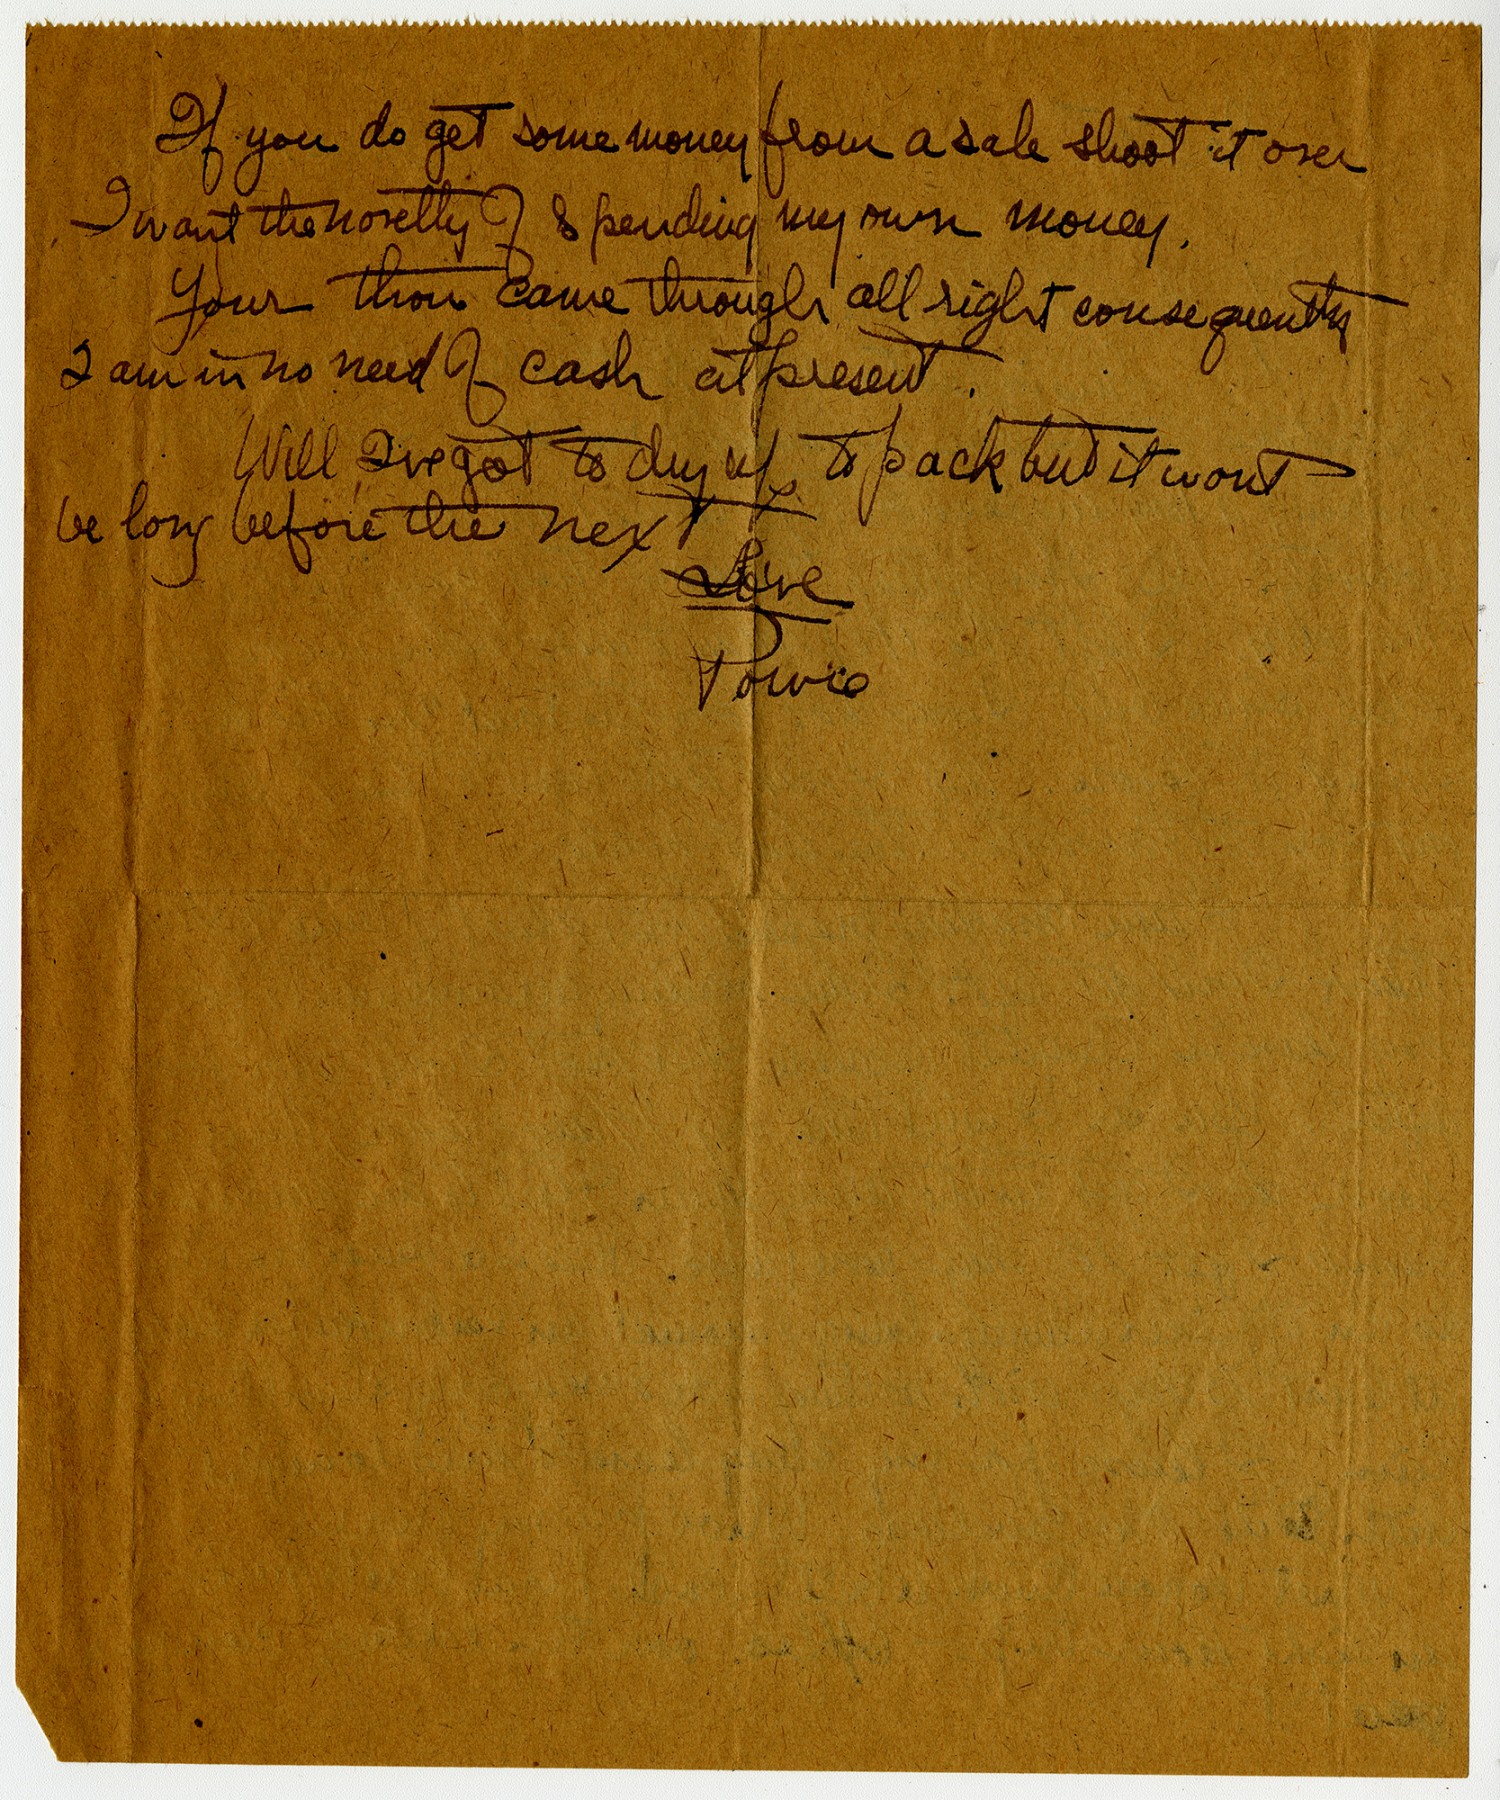 If you do get some money from a sale shoot it over
I want the novelty of spending my own money.
Your thou came through all right consequently
I am in no need of cash at present.
Well I've got to dry up to pack but it wont
be long before the next
Love